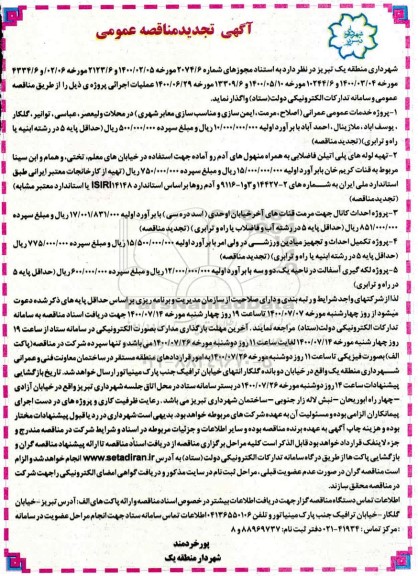 آگهی تجدیدمناقصه عمومی
شهرداری منطقه یک تبریز در نظر دارد به استناد مجوزهای شماره ۲۰۷۴/۶ مورخه ۱۴۰۰/۰۲/۰۵ و ۲۱۲۳/۶ مورخه ۰۲/۰۶ و ۴۳۳۴/۶
مورخه ۱۴۰۰/۰۳/۰۴ و ۱۰۲۴۴/۶ مورخه ۱۴۰۰/۰۵/۱۰ و ۱۳۳۰۹/۶ مورخه ۱۴۰۰/۰۶/۲۹ عملیات اجرائی پروژه ی ذیل را از طریق مناقصه
عمومی و سامانه تدارکات الکترونیکی دولت(ستاد) واگذار نماید.
۱-پروژه خدمات عمومی عمرانی (اصلاح، مرمت، ایمن سازی و مناسب سازی معابر شهری) در محلات ولیعصر، عباسی، توانیر، گلکار
، یوسف اباد، ملازینال، احمد آباد با برآورد اولیه ۱۰/۰۰۰/۰۰۰/۰۰۰ ریال و مبلغ سپرده ۵۰۰/۰۰۰/۰۰۰ ریال (حداقل پایه ۵ در رشته ابنیه یا
راه و ترابری)(تجدید مناقصه)
۲-تهیه لوله های پلی اتیلن فاضلابی به همراه منهول های آدم رو آماده جهت استفاده در خیابان های معلم، تختی، و همام و ابن سینا
مربوط به قنات کریم خان بابرآورد اولیه ۱۵/۰۰۰/۰۰۰/۰۰۰ ریال و مبلغ سپرده ۷۵۰/۰۰۰/۰۰۰ ریال (تهیه از کارخانجات معتبر ایرانی طبق
استاندارد ملی ایران به شماره های ۲-۱۴۴۲۷ و ۳-۹۱۱۶ و آدم روها بر اساس استاندارد ISIRI۱۴۱۴۸ یا استاندارد معتبر مشابه)
(تجدید مناقصه)
۳-پروژه احداث کانال جهت مرمت قنات های آخر خیابان اوحدی (اسد دره سی) با برآورد اولیه ۱۷/۰۰۱/۸۳۱/۰۰۰ ریال و مبلغ سپرده
۸۵۱/۰۰۰/۰۰۰ ریال (حداقل پایه ۵ در رشته آب و فاضلاب یا راه و ترابری) (تجدید مناقصه)
۴-پروژه تکمیل احداث و تجهیز میادین ورزشی در ولی امر با برآورد اولیه ۱۵/۵۰۰/۰۰۰/۰۰۰ ریال و مبلغ سپرده ۷۷۵/۰۰۰/۰۰۰ ریال
(حداقل پایه ۵ در رشته ابنیه یا راه و ترابری) (تجدید مناقصه)
۵-پروژه لکه گیری آسفالت در ناحیه یک، دو و سه با برآورد اولیه ۱۲/۰۰۰/۰۰۰/۰۰۰ ریال و مبلغ سپرده ۶۰۰/۰۰۰/۰۰۰ ریال (حداقل پایه ۵
در راه و ترابری)
لذا از شرکتهای واجد شرایط و رتبه بندی و دارای صلاحیت از سازمان مدیریت و برنامه ریزی بر اساس حداقل پایه های ذکر شده دعوت
میشود از روز چهارشنبه مورخه ۱۴۰۰/۰۷/۰۷ تا ساعت ۱۹ روز چهارشنبه مورخه ۱۴۰۰/۰۷/۱۴ جهت دریافت اسناد مناقصه به سامانه
تدارکات الکترونیکی دولت(ستاد) مراجعه نمایند. آخرین مهلت بارگذاری مدارک بصورت الکترونیکی در سامانه ستاد از ساعت ۱۹
روز چهارشنبه مورخه ۱۴۰۰/۰۷/۱۴ لغایت ساعت ۱۱ روز دوشنبه مورخه ۱۴۰۰/۰۷/۲۶ می باشد و تنها سپرده شرکت در مناقصه(پاکت
الف) بصورت فیزیکی تا ساعت ۱۱ روز دوشنبه مورخه ۱۴۰۰/۰۷/۲۶ به امور قراردادهای منطقه مستقر در ساختمان معاونت فنی و عمرانی
شهرداری منطقه یک واقع در خیابان دو بانده گلکار انتهای خیابان ترافیک جنب پارک مینیاتور ارسال خواهد شد. تاریخ بازگشایی
پیشنهادات ساعت ۱۴ روز دوشنبه مورخه ۱۴۰۰/۰۷/۲۶ در بستر سامانه ستاد در محل اتاق جلسه شهرداری تبریز واقع در خیابان آزادی
-چهار راه ابوریحان -نبش لاله زار جنوبی -ساختمان شهرداری تبریز می باشد. رعایت ظرفیت کاری و پروژه های در دست اجرای
پیمانکاران الزامی بوده و مسئولیت آن به عهده شرکت های مربوطه خواهد بود. بدیهی است شهرداری در رد یا قبول پیشنهادات مختار
بوده و هزینه چاپ آگهی به عهده برنده مناقصه بوده و سایر اطلاعات و جزئیات مربوطه در اسناد و شرایط شرکت در مناقصه مندرج و
جزء لاینفک قرارداد خواهد بود قابل الذکر است کلیه مراحل برگزاری مناقصه از دریافت اسناد مناقصه تا ارائه پیشنهاد مناقصه گران و
بازگشایی پاکت ها از طریق درگاه سامانه تدارکات الکترونیکی دولت(ستاد) به آدرس www.setadiran.ir انجام خواهد شد و الزام
است مناقصه گران در صورت عدم عضویت قبلی، مراحل ثبت نام در سایت مذکور و دریافت گواهی امضای الکترونیکی را جهت شرکت
در مناقصه محقق سازند.
اطلاعات تماس دستگاه مناقصه گزار جهت دریافت اطلاعات بیشتر در خصوص اسناد مناقصه و ارائه پاکت های الف: آدرس تبریز-خیابان
گلکار-خیابان ترافیک جنب پارک مینیاتور و تلفن ۰۴۱۳۶۵۵۰۱۰۶ اطلاعات تماس سامانه ستاد جهت انجام مراحل عضویت در سامانه
: مرکز تماس: ۴۱۹۳۴-۰۲۱ دفتر ثبت نام: ۸۸۹۶۹۷۳۷ و ۸
پور خردمند
شهردار منطقه یک